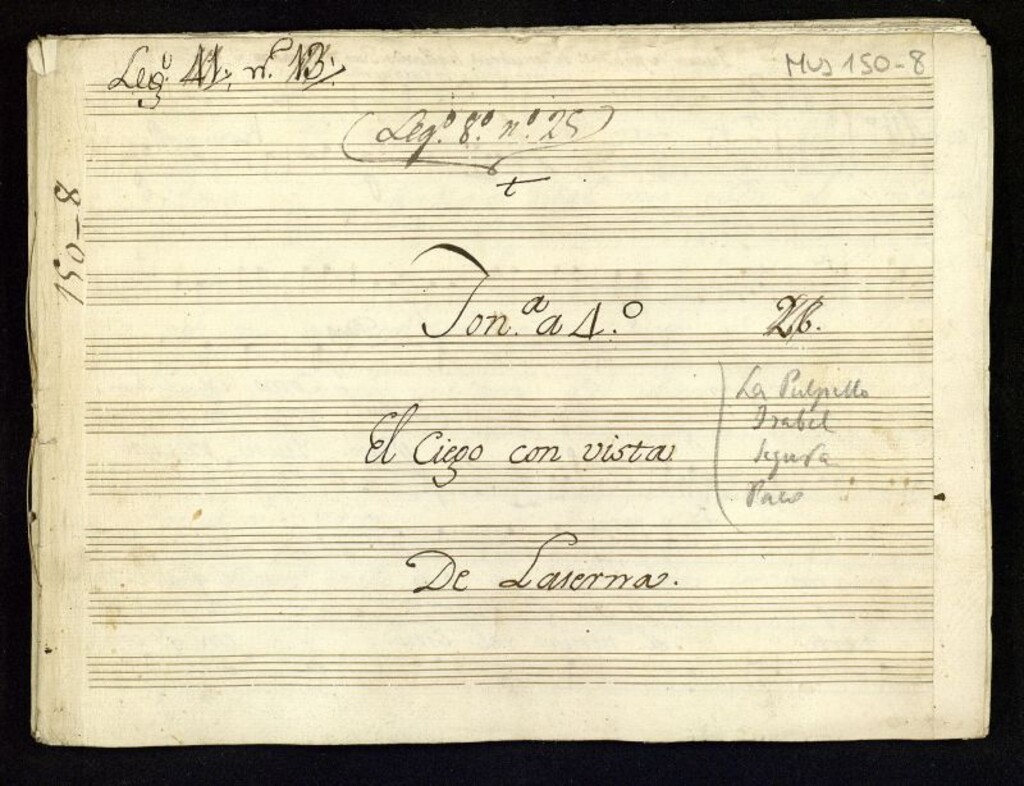 Leg.º 41, n.º 13.
Mus 150-8
(Leg.º 8.º n.º 25)
t
150-8
Ton.ª a 4.º
El Ciego con vista
La Pulpillo
Isabel
Segura
Paco
De Laserna.